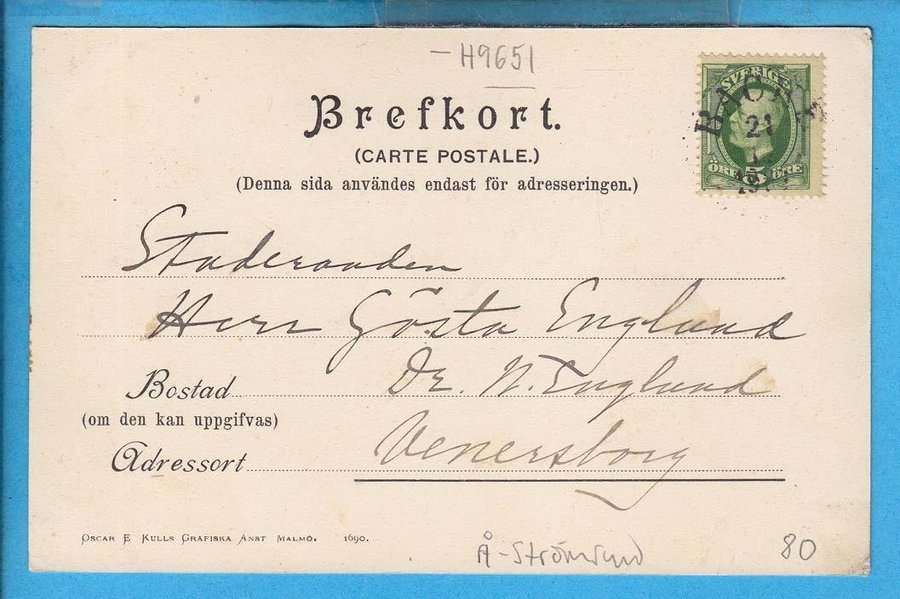 - H9651
Brefkort.
(CARTE POSTALE.)
(Denna sida användes endast för adresseringen.)
SVERIGE
BACKE
21
1
ÖRE 5 ÖRE
Studeranden
Herr Gösta Englund
Dr. N. Englund
Bostad
(om den kan uppgifvas)
Venersborg
Adressort
OSCAR E KULLS GRAFISKA ANST MALMÖ. 1690.
Å-Strömsund
80